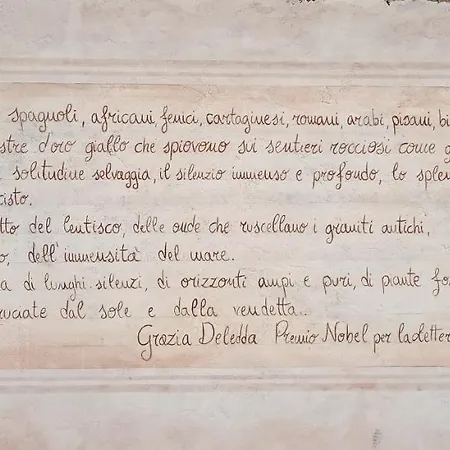 spagnoli, africani, fenici, cartaginesi, romani, arabi, pisani, bi
stre d'oro giallo che spiovono sui sentieri rocciosi come g
solitudine selvaggia, il silenzio immenso e profondo, lo sple
isto.
tto del lentisco, delle onde che ruscellano i graniti antichi,
o, dell'immensità del mare.
a di lunghi silenzi, di orizzonti ampi e puri, di piante fo
ruciate dal sole e dalla vendetta...
Grazia Deledda Premio Nobel per la letter